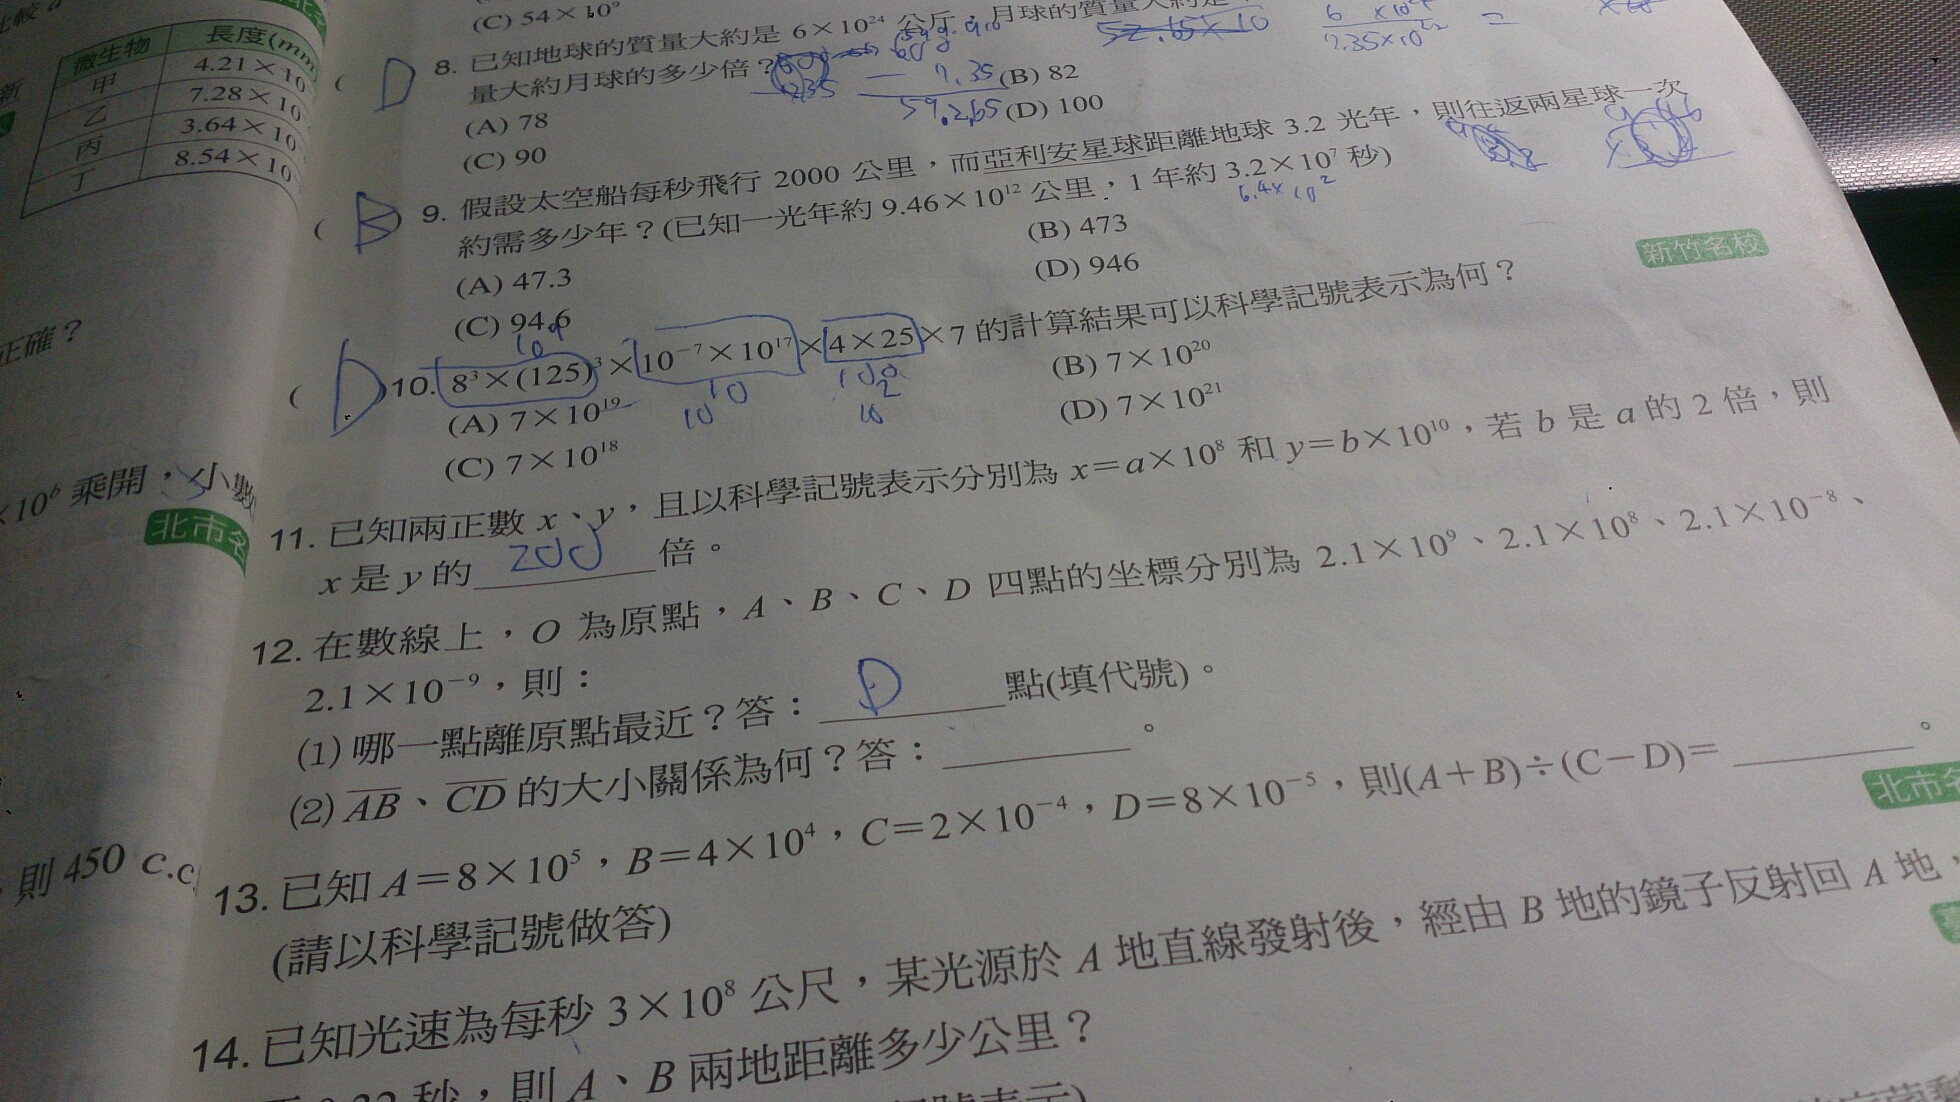 微生物 長度(mm
甲 4.21×10
乙 7.28×10
丙 3.64×10
丁 8.54×10
正確？
×10⁶ 乘開，小數
北市名
則 450 c.c
(C) 54×10⁹
D 8. 已知地球的質量大約是 6×10²⁴ 公斤，月球的質量大約是
量大約月球的多少倍？
(A) 78 (B) 82
(C) 90 (D) 100
7.35
59.265
( B ) 9. 假設太空船每秒飛行 2000 公里，而亞利安星球距離地球 3.2 光年，則往返兩星球一次
約需多少年？(已知一光年約 9.46×10¹² 公里，1 年約 3.2×10⁷ 秒)
6.4×10²
(A) 47.3 (B) 473
(C) 94.6 (D) 946
新竹名校
10⁹
( D )10. 8³×(125)³×10⁻⁷×10¹⁷×4×25×7 的計算結果可以科學記號表示為何？
10¹⁰ 100
10²
(A) 7×10¹⁹ (B) 7×10²⁰
(C) 7×10¹⁸ (D) 7×10²¹
11. 已知兩正數 x、y，且以科學記號表示分別為 x＝a×10⁸ 和 y＝b×10¹⁰，若 b 是 a 的 2 倍，則
x 是 y 的 200 倍。
12. 在數線上，O 為原點，A、B、C、D 四點的坐標分別為 2.1×10⁹、2.1×10⁸、2.1×10⁻⁸、
2.1×10⁻⁹，則：
(1) 哪一點離原點最近？答： D 點(填代號)。
(2) AB、CD 的大小關係為何？答：。
13. 已知 A＝8×10⁵，B＝4×10⁴，C＝2×10⁻⁴，D＝8×10⁻⁵，則(A＋B)÷(C－D)＝。
(請以科學記號做答)
北市名
14. 已知光速為每秒 3×10⁸ 公尺，某光源於 A 地直線發射後，經由 B 地的鏡子反射回 A 地，
秒，則 A、B 兩地距離多少公里？